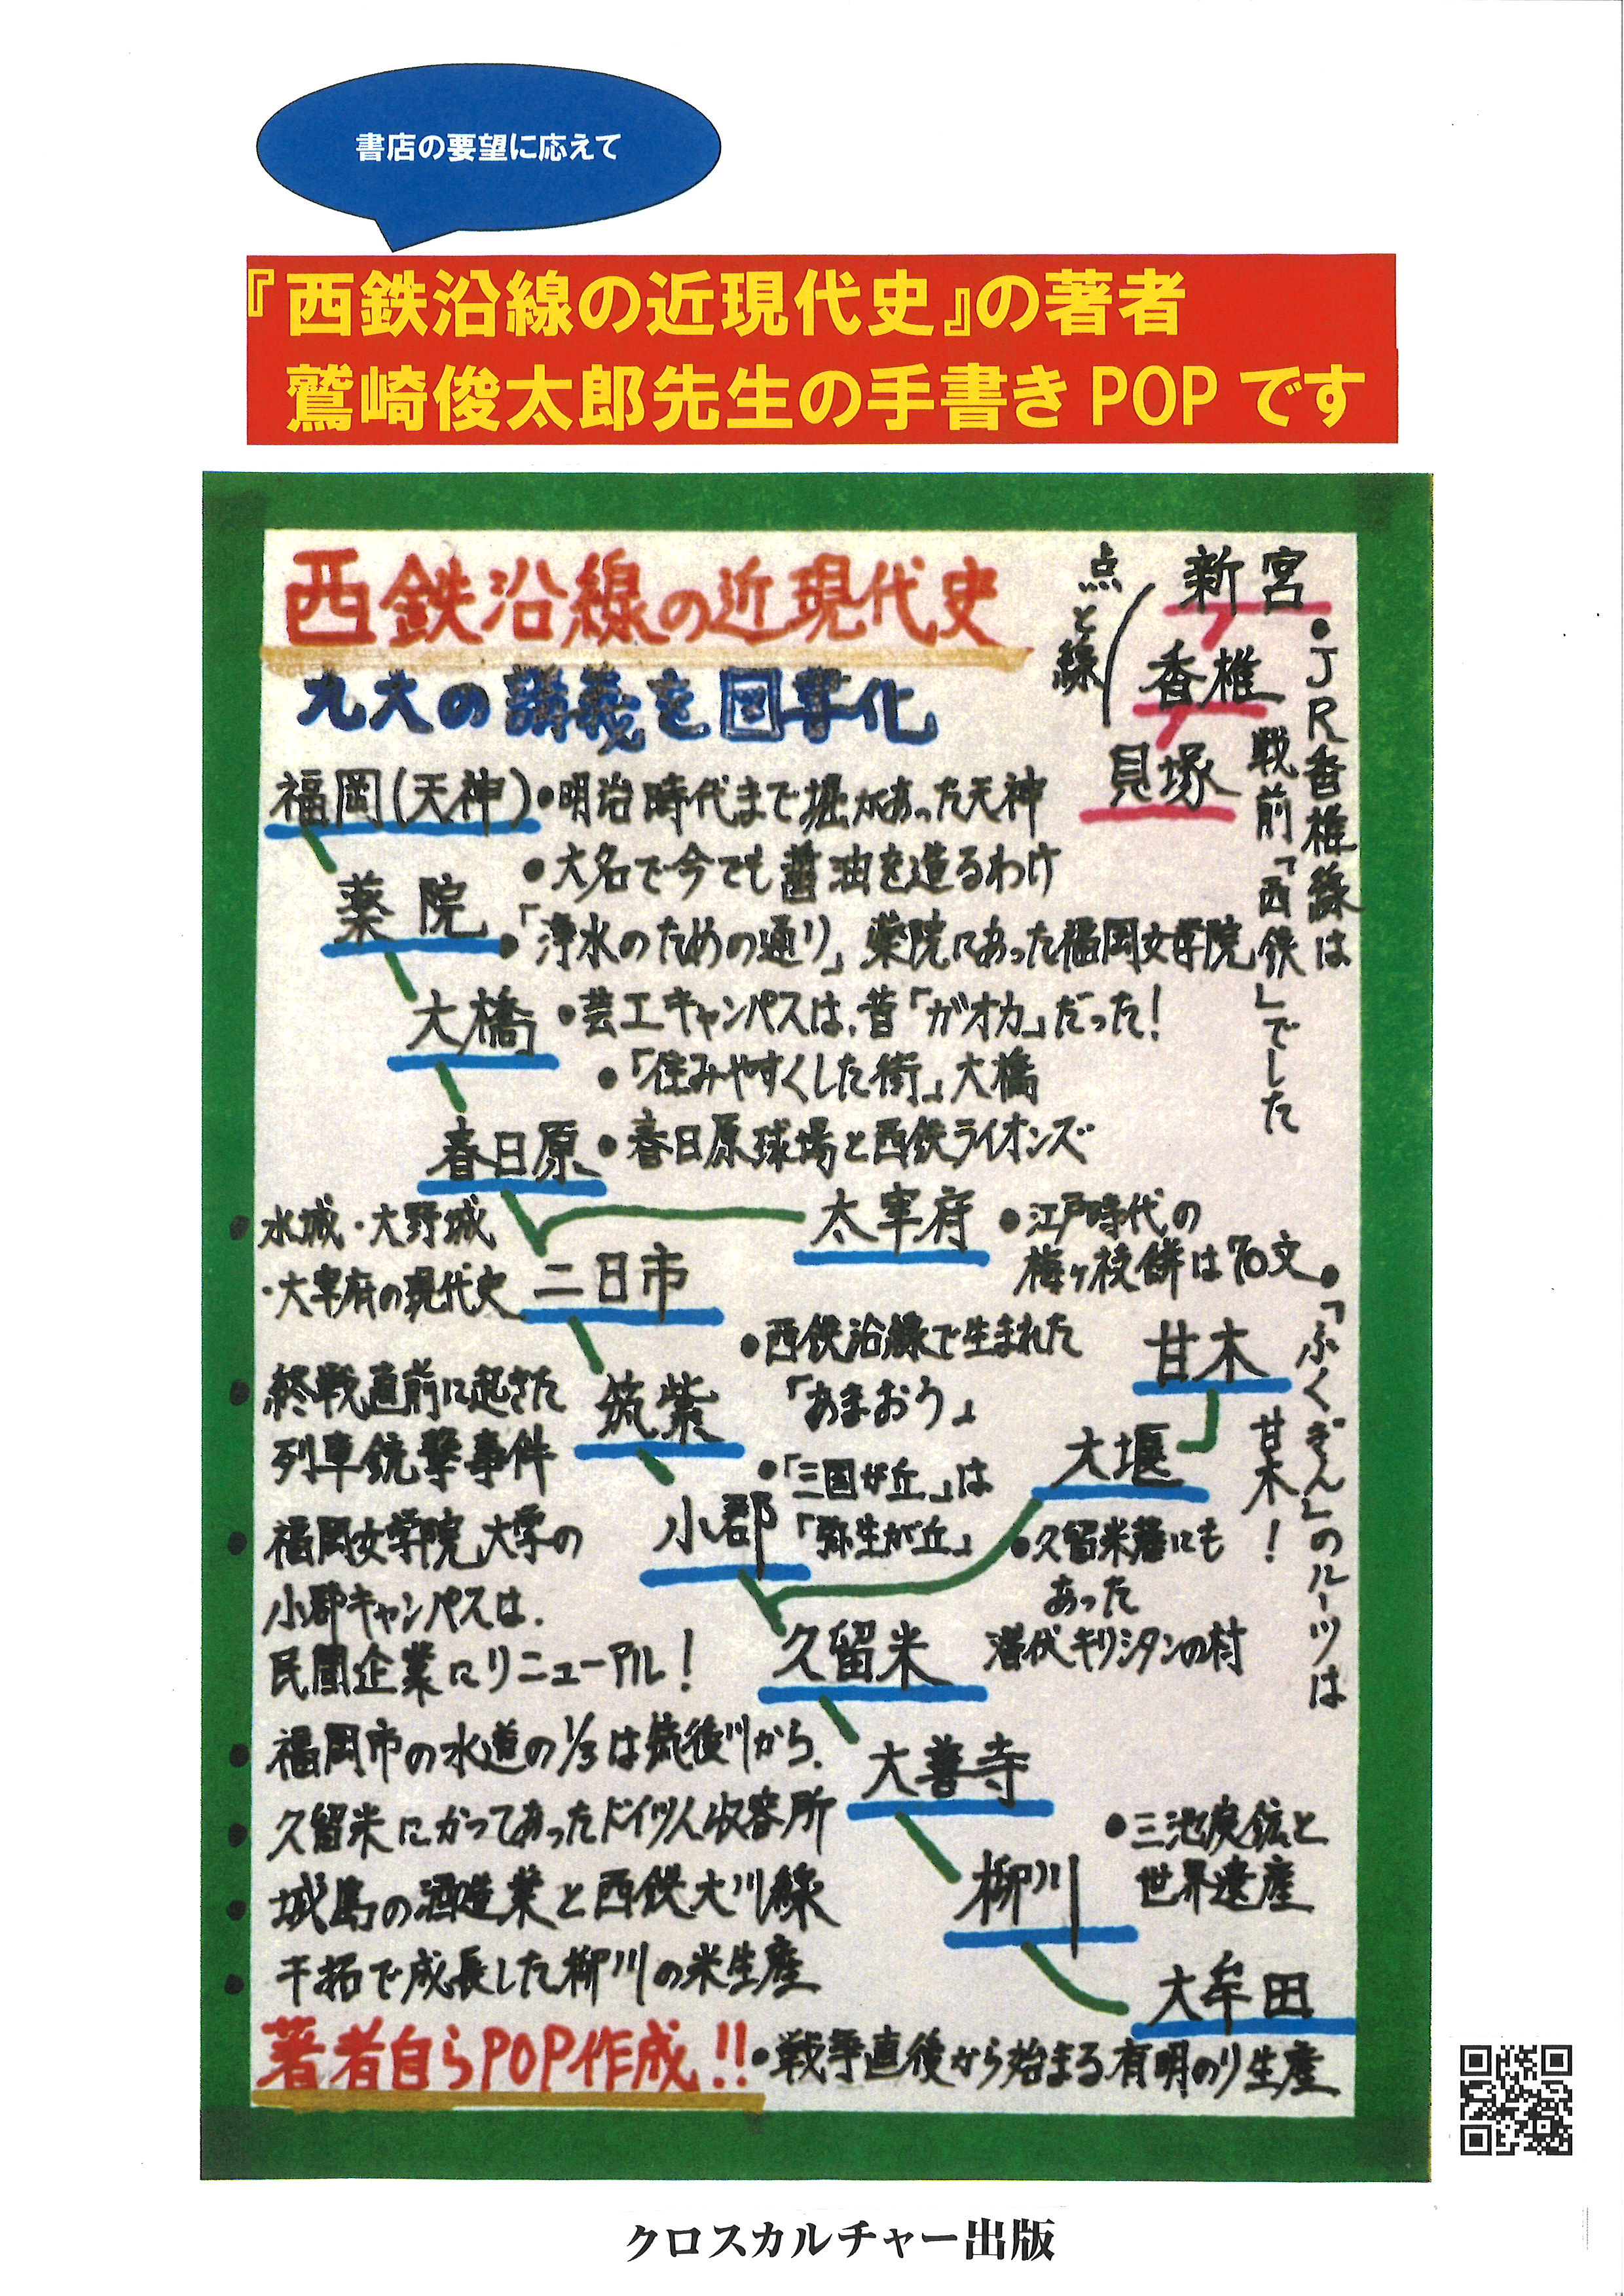 書店の要望に応えて
『西鉄沿線の近現代史』の著者
鷲崎俊太郎先生の手書きPOPです
西鉄沿線の近現代史
九大の講義を図書化
点と線
新宮
香椎
貝塚
•JR香椎線は
戦前「西鉄」でした
福岡(天神)
•明治時代まで堀があった天神
•大名で今でも醤油を造るわけ
薬院
•「浄水のための通り」薬院にあった福岡女学院
大橋
•芸工キャンパスは、昔「ガオカ」だった!
•「住みやすくした街」大橋
春日原
•春日原球場と西鉄ライオンズ
•水城・大野城
・大宰府の現代史
二日市
太宰府
•江戸時代の
梅ヶ枝餅は70文
•西鉄沿線で生まれた
「あまおう」
•終戦直前に起きた
列車銃撃事件
筑紫
•「三国が丘」は
「弥生が丘」
甘木
•「ふくぎん」のルーツは
甘木!
大堰
•久留米藩にも
あった
潜伏キリシタンの村
小郡
•福岡女学院大学の
小郡キャンパスは、
民間企業にリニューアル!
久留米
•福岡市の水道の1/3は筑後川から、
•久留米にかつてあったドイツ人収容所
大善寺
•城島の酒造業と西鉄大川線
•干拓で成長した柳川の米生産
柳川
•三池炭鉱と
世界遺産
大牟田
•戦争直後から始まる有明のり生産
著者自らPOP作成!!
クロスカルチャー出版